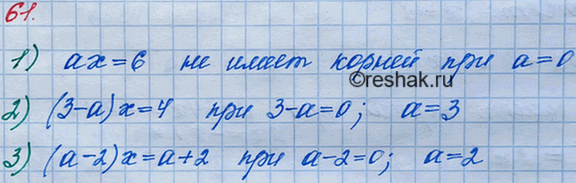 61.
1) ax=6 не имеет корней при a=0
©reshak.ru
2) (3-a)x=4 при 3-a=0; a=3
3) (a-2)x=a+2 при a-2=0; a=2